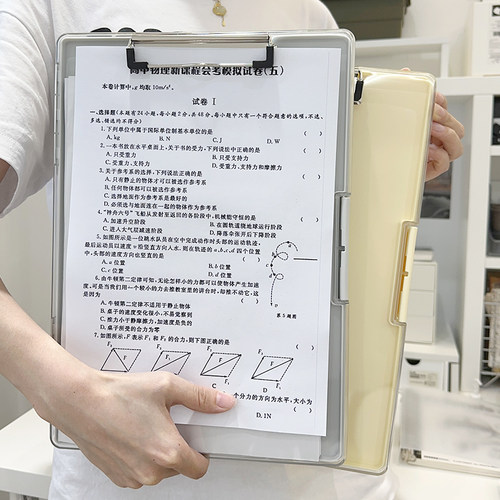 高中物理新课程会考模拟试卷(五)
本卷计算中,g 均取10m/s².
试卷 Ⅰ
一、选择题(本题有24小题,每小题2分,共48分,每小题中只有一个符合题意的选项,不选、
多选、错选均不得分)
1.下列单位中属于国际单位制基本单位的是 ( )
A. kg B. N C. J D. W
2.一本书放在水平桌面上,关于书的受力,下列说法中正确的是 ( )
A.只受重力 B.只受支持力
C.受重力、支持力 D.受重力、支持力和摩擦力
3.关于参考系的选择,下列说法正确的是 ( )
A.只有静止的物体才可以被选作参考系
B.任何物体都可以被选作参考系
C.选择地面作为参考系是最好的
D.必须选与地面连在一起的物体作为参考系
4.“神舟六号”飞船从发射至返回的各阶段中,机械能守恒的是 ( )
A.加速升空阶段 B.在圆轨道绕地球运行阶段
C.进入大气层减速阶段 D.降落伞张开后下降阶段
5.如图所示是一位跳水队员在空中完成动作时头部的运动轨迹,
最后运动员以速度v沿竖直方向入水.则在轨迹的a、b、c、d四个位置
中,头部的速度方向也竖直的是 ( )
A. a 位置 B. b 位置
C. c 位置 D. d 位置
第 5 题图
6.由牛顿第二定律可知,无论怎样小的力都可以使物体产生加速
度,可是当我们用一个较小的力去推教室里的讲台时,却推不动它,这
是因为 ( )
A.牛顿第二定律不适用于静止物体
B.桌子的速度变化很小,不易觉察到
C.推力小于静摩擦力,加速度是负的
D.桌子所受的合力为零
7.如图所示,F 表示 F₁ 和 F₂ 的合力,则下图正确的是 ( )
F₂ F F₁ F₂ F₂ F F₁ F₂ F F₁
C D
个分力的方向为水平,大小为
( )
D. 1N